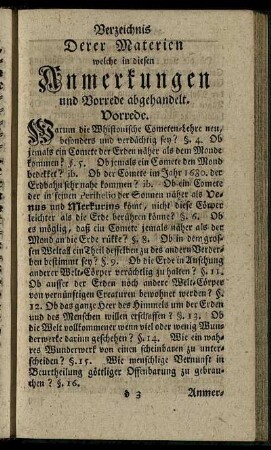 Verzeichnis
Derer Materien
welche in diesen
Anmerkungen
und Vorrede abgehandelt.
Vorrede.
Warum die Whistonische Cometen-Lehre neu,
besonders und verdächtig sey? §. 4. Ob
jemals ein Comete der Erden näher als dem Monde
kommen? §. 5. Ob jemals ein Comete den Mond
bedekket? ib. Ob der Comete im Jahr 1680. der
Erdbahn sehr nahe kommen? ib. Ob ein Comete
der in seinem Perihelio der Sonnen näher als Ve-
nus und Merkurius kömt, nicht diese Cörper
leichter als die Erde berühren könne? §. 6. Ob
es möglich, daß ein Comete jemals näher als der
Mond an die Erde rükke? §. 8. Ob in dem gros-
sen Weltall ein Theil desselben zu des andern Verder-
ben bestimmt sey? §. 9. Ob die Erde in Ansehung
anderer Welt-Cörper verächtlig zu halten? §. 11.
Ob ausser der Erden noch andere Welt-Cörper
von vernünftigen Creaturen bewohnet werden? §.
12. Ob das ganze Heer des Himmels um der Erden
und des Menschen willen erschaffen? §. 13. Ob
die Welt vollkommener wenn viel oder wenig Wun-
derwerke darinn geschehen? §. 14. Wie ein wah-
res Wunderwerk von einen scheinbaren zu unter-
scheiden? §. 15. Wie menschlige Vernunft in
Beurtheilung göttliger Offenbarung zu gebrau-
chen? §. 16.
b 3 Anmer-